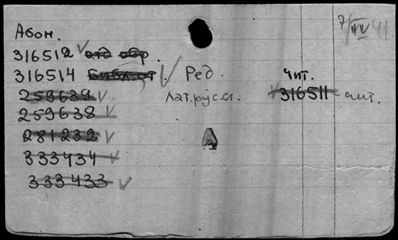 7/IV 41
Абон.
316512 отд обр.
316514 библ от Ред. Чит.
259639 Лат. рус. сл. 316511 чит.
259638
281232
333434
333433